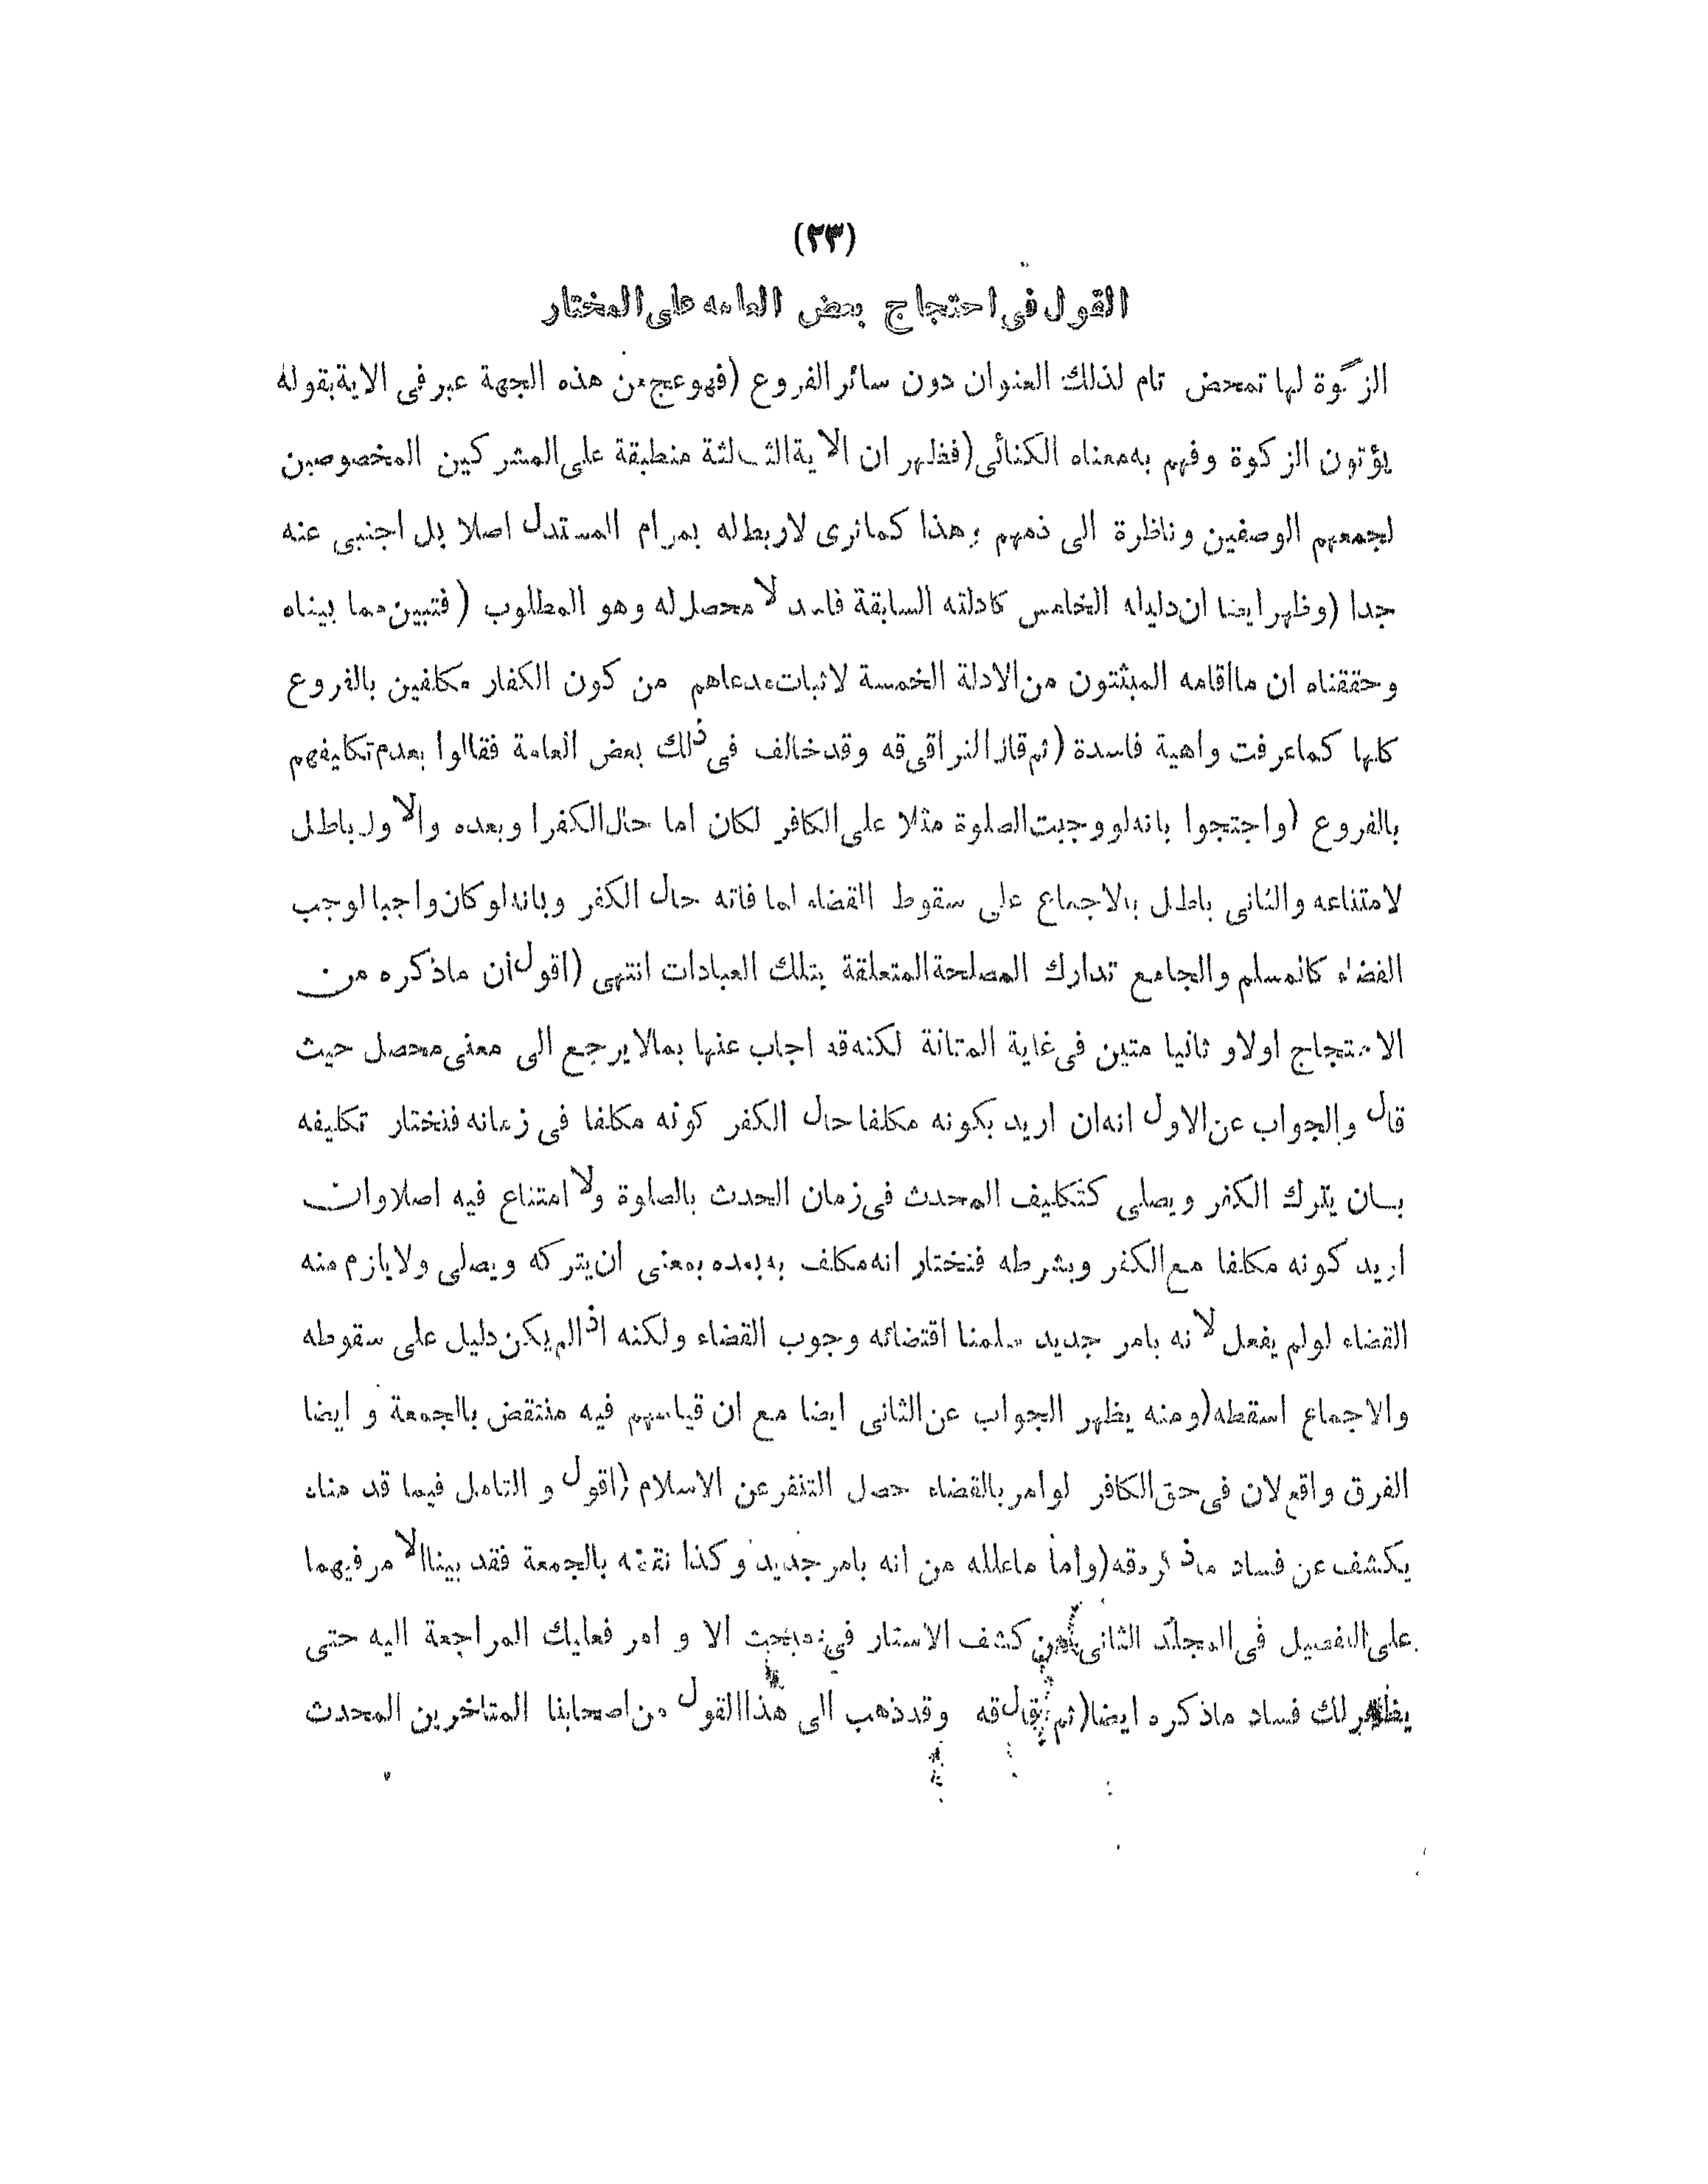 (٢٣)
القول في احتجاج بعض العامه على المختار
الزكوة لها تمحض تام لذلك العنوان دون سائر الفروع (فهو عج من هذه الجهة عبر فى الاية بقوله
يؤتون الزكوة وفهم به معناه الكنائى (فظهر ان الاية الثالثة منطبقة على المشركين المخصوصين
لجمعهم الوصفين وناظرة الى ذمهم وهذا كماترى لاربط له بمرام المستدل اصلا بل اجنبى عنه
جدا (وظهر ايضا ان دليله الخامس كادلته السابقة فاسد لا محصل له وهو المطلوب (فتبين مما بيناه
وحققناه ان مااقامه المبثتون من الادلة الخمسة لاثبات مدعاهم من كون الكفار مكلفين بالفروع
كلها كماعرفت واهية فاسدة (ثم قال النراقى قه وقدخالف فى ذلك بعض العامة فقالوا بعدم تكليفهم
بالفروع (واحتجوا بانه لو وجبت الصلوة مثلا على الكافر لكان اما حال الكفر او بعده والاول باطل
لامتناعه والثانى باطل بالاجماع على سقوط القضاء لما فاته حال الكفر وبانه لو كان واجبا لوجب
القضاء كالمسلم والجامع تدارك المصلحة المتعلقة بتلك العبادات انتهى (اقول ان ماذكره من
الاحتجاج اولاو ثانيا متين فى غاية المتانة لكنه قد اجاب عنها بمالا يرجع الى معنى محصل حيث
قال والجواب عن الاول انه ان اريد بكونه مكلفا حال الكفر كونه مكلفا فى زمانه فنختار تكليفه
بان يترك الكفر ويصلى كتكليف المحدث فى زمان الحدث بالصلوة ولا امتناع فيه اصلا وان
اريد كونه مكلفا مع الكفر وبشرطه فنختار انه مكلف به بعده بمعنى ان يتركه ويصلى ولايلزم منه
القضاء لولم يفعل لانه بامر جديد سلمنا اقتضائه وجوب القضاء ولكنه اذالم يكن دليل على سقوطه
والاجماع اسقطه (ومنه يظهر الجواب عن الثانى ايضا مع ان قياسهم فيه منتقض بالجمعة و ايضا
الفرق واقع لان فى حق الكافر لو امر بالقضاء حصل التنفر عن الاسلام (اقول و التامل فيما قد مناه
يكشف عن فساد ماذكره قه (واما ماعلله من انه بامر جديد وكذا نقضه بالجمعة فقد بينا الامر فيهما
على التفصيل فى المجلد الثانى من كشف الاستار فى مبحث الا و امر فعليك المراجعة اليه حتى
يظهر لك فساد ماذكره ايضا (ثم قال قه وقدذهب الى هذا القول من اصحابنا المتاخرين المحدث